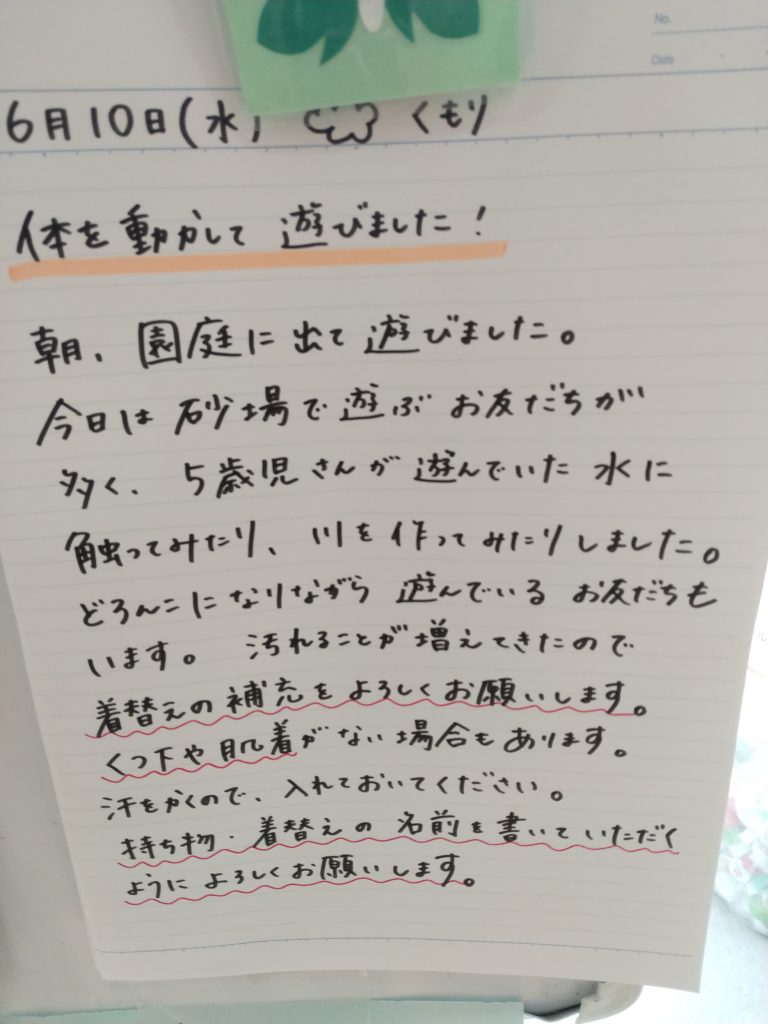 No.
Date
6月10日(水) くもり
体を動かして 遊びました!
朝、園庭に出て遊びました。
今日は砂場で遊ぶお友だちが
多く、5歳児さんが遊んでいた水に
触ってみたり、川を作ってみたりしました。
どろんこになりながら遊んでいるお友だちも
います。汚れることが増えてきたので
着替えの補充をよろしくお願いします。
くつ下や肌着がない場合もあります。
汗をかくので、入れておいてください。
持ち物・着替えの名前を書いていただく
ようによろしくお願いします。